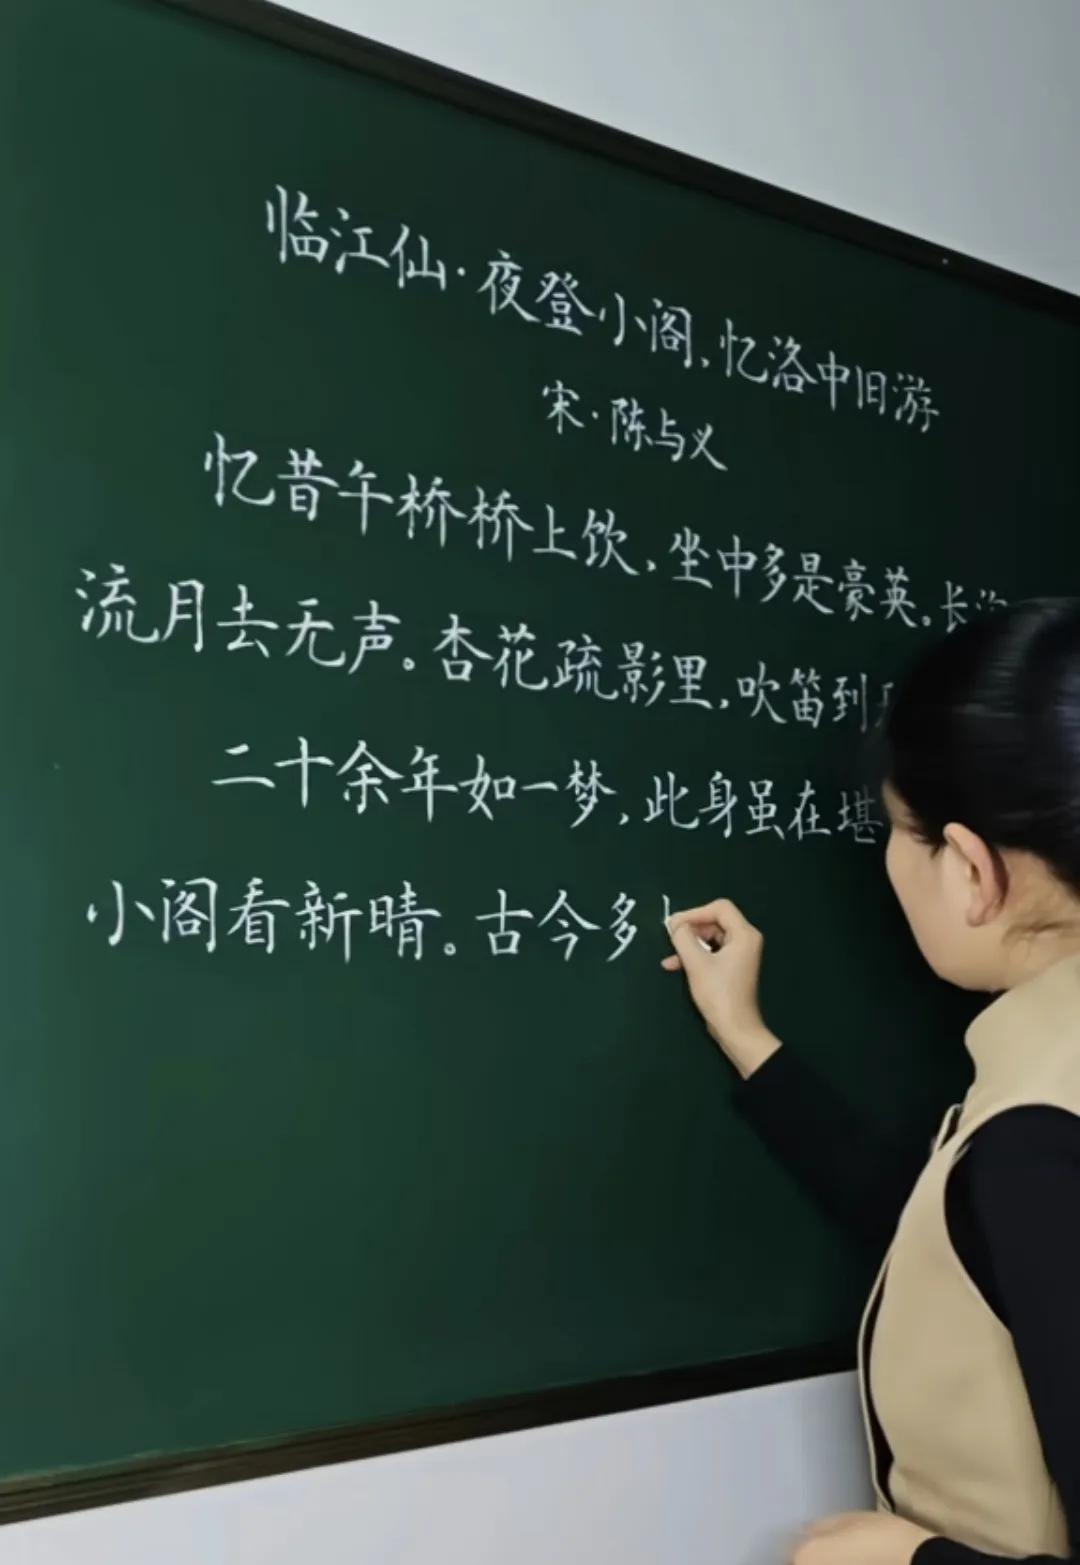 临江仙·夜登小阁,忆洛中旧游
宋·陈与义
忆昔午桥桥上饮,坐中多是豪英。长
流月去无声。杏花疏影里,吹笛到
二十余年如一梦,此身虽在堪
小阁看新晴。古今多